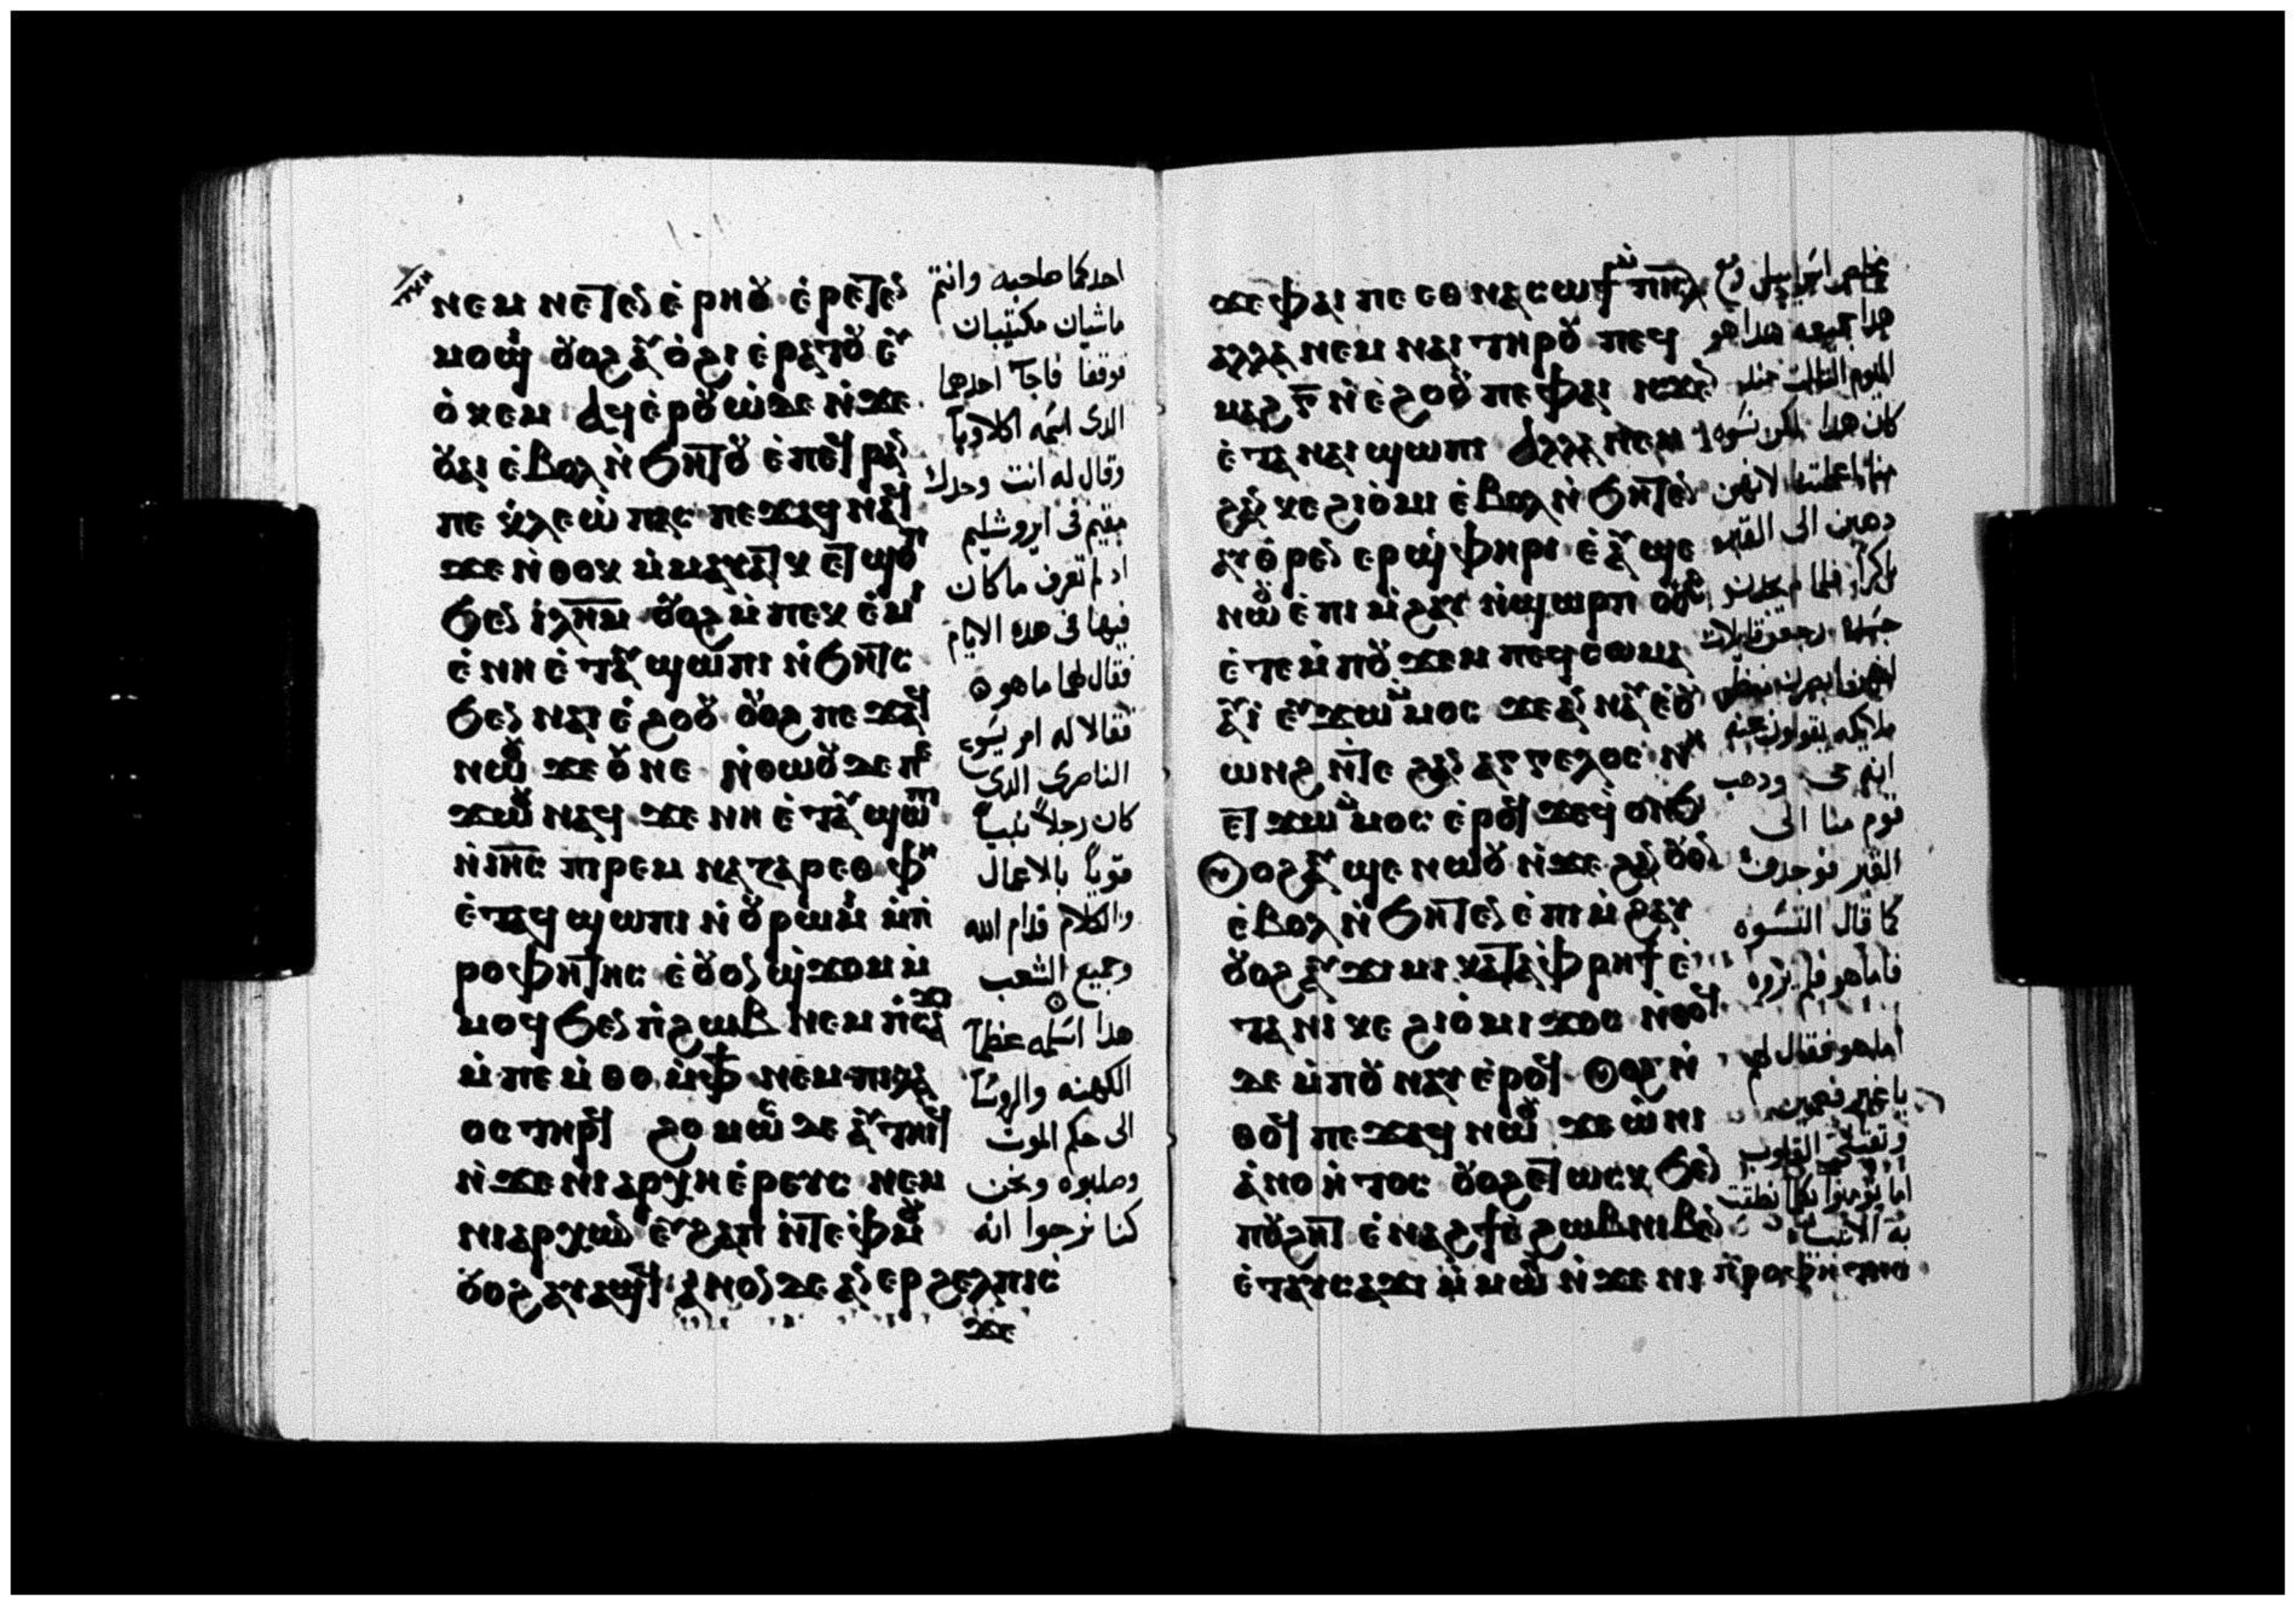 ⲛⲉⲙ ⲛⲉⲧⲉⲛ ⲉ̀ⲣⲏⲟⲩ ⲉ̀ⲣⲉⲧⲉⲛ
ⲙⲟϣⲓ ⲟⲩⲟϩ ⲁⲩⲟ̀ϩⲓ ⲉ̀ⲣⲁⲧⲟⲩ ⲉⲩ
ⲟ̀ⲕⲉⲙ ⲁϥⲉ̀ⲣⲟⲩⲱ̀ ⲇⲉ ⲛ̀ϫⲉ
ⲟⲩⲁⲓ ⲉ̀ⲃⲟⲗ ⲛ̀ϧⲏⲧⲟⲩ ⲉ̀ⲡⲉϥⲣⲁⲛ
ⲡⲉ ⲕ̀ⲗⲉⲱ̀ⲡⲁⲥ ⲡⲉϫⲁϥ ⲛⲁϥ
ϫⲉ ⲛ̀ⲑⲟⲕ ⲙ̀ⲙⲁⲩⲁⲧⲕ ⲉⲧϣⲟⲡ
ϧⲉⲛ ⲓ̀ⲗⲏⲙ ⲟⲩⲟϩ ⲙ̀ⲡⲉⲕⲉ̀ⲙⲓ
ⲉ̀ⲛⲏ ⲉ̀ⲧⲁⲩϣⲱⲡⲓ ⲛ̀ϧⲏⲧⲥ
ϧⲉⲛ ⲛⲁⲓ ⲉ̀ϩⲟⲟⲩ ⲟⲩⲟϩ ⲡⲉϫⲁϥ
ⲛⲱⲟⲩ ϫⲉ ⲟⲩ ⲛⲉ ⲛ̀ⲑⲱⲟⲩ ⲇⲉ ⲡⲉ
ϫⲱⲟⲩ ⲛⲁϥ ϫⲉ ⲛⲏ ⲉ̀ⲧⲁⲩϣⲱⲡⲓ
ⲛ̀ⲓⲏⲥ ⲡⲓⲣⲉⲙ ⲛⲁⲍⲁⲣⲉⲑ ⲫⲏ
ⲉ̀ⲧⲁϥϣⲱⲡⲓ ⲛ̀ⲟⲩⲣⲱⲙⲓ ⲙ̀ⲡ̀
ⲣⲟⲫⲏⲧⲏⲥ ⲉ̀ⲟⲩⲟⲛ ϣ̀ϫⲟⲙ ⲙ̀
ⲙⲟϥ ϧⲉⲛ ⲡ̀ϩⲱⲃ ⲛⲉⲙ ⲡ̀ⲥⲁϫⲓ
ⲙ̀ⲡⲉⲙ̀ⲑⲟ ⲙ̀ⲫϯ ⲛⲉⲙ ⲡⲓⲗⲁ
ⲟⲥ ⲧⲏⲣϥ ϩⲟⲙⲱⲥ ⲇⲉ ⲁⲩⲧⲏⲓϥ
ⲛ̀ϫⲉ ⲛⲓⲁⲣⲭⲏⲉ̀ⲣⲉⲩⲥ ⲛⲉⲙ
ⲛⲓⲁⲣⲭⲱⲛ ⲉⲩϩⲁⲡ ⲛ̀ⲧⲉ ⲫ̀ⲙⲟⲩ
ⲟⲩⲟϩ ⲁⲩⲁϣϥ ⲁⲛⲟⲛ ⲇⲉ ⲁⲛⲉⲣϩⲉⲗⲡⲓⲥ
ϫⲉ
احدكما صاحبه وانتم
ماشيان مكتيبان
فوقفا فاجآ احدهما
الدى اسمه اكلاوبا
وقال له انت وحدك
مقيم فى ايروشليم
اد لم تعرف ما كان
فيها فى هده الايام
فقال لهما ما هو
فقالا له امر يسوع
الناصرى الدى
كان رجلاً نبياً
قوياً بالاعمال
والكلام قدام الله
وجميع الشعب
هدا اسلمه عظما
الكهنه والروسا
الى حكم الموت
وصلبوه ونحن
كنا نرجوا انه
ϫⲉ ⲫⲁⲓ ⲡⲉⲑⲛⲁⲥⲱϯ ⲙ̀ⲡⲓⲥⲗ
ⲁⲗⲗⲁ ⲛⲉⲙ ⲛⲁⲓ ⲧⲏⲣⲟⲩ ⲡⲉϥ
ⲙⲁϩ ⲅ̅ ⲛ̀ⲉ̀ϩⲟⲟⲩ ⲡⲉ ⲫⲁⲓ ⲓⲥϫⲉⲛ
ⲉ̀ⲧⲁ ⲛⲁⲓ ϣⲱⲡⲓ ⲁⲗⲗⲁ ⲛⲉⲙ
ϩⲁⲛ ⲕⲉ ϩⲓⲟ̀ⲙⲓ ⲉ̀ⲃⲟⲗ ⲛ̀ϧⲏⲧⲉⲛ
ⲁⲩⲑ̀ⲣⲉⲛ ⲉⲣϣ̀ⲫⲏⲣⲓ ⲉ̀ⲁⲩϣⲉ
ⲛⲱⲟⲩ ⲉ̀ⲡⲓⲙ̀ϩⲁⲩ ⲛ̀ϣⲱⲣⲡ ⲟⲩⲟϩ
ⲉ̀ⲧⲉⲙ̀ⲡⲟⲩϫⲉⲙ ⲡⲉϥⲥⲱⲙⲁ
ⲁⲩⲓ̀ ⲉⲩϫⲱ ⲙ̀ⲙⲟⲥ ϫⲉ ⲁⲛⲛⲁⲩ ⲉ̀ⲟⲩ
ⲱⲛϩ ⲛ̀ⲧⲉ ϩⲁⲛⲁⲅⲅⲉⲗⲟⲥ ⲛⲏ
ⲉⲧϫⲱ ⲙ̀ⲙⲟⲥ ⲉ̀ⲣⲟϥ ϫⲉ ϥ̀ⲟⲛϧ
ⲟⲩⲟϩ ⲁⲩϣⲉ ⲛⲱⲟⲩ ⲛ̀ϫⲉ ϩⲁⲛⲟⲩⲟⲛ
ⲉ̀ⲃⲟⲗ ⲛ̀ϧⲏⲧⲉⲛ ⲉ̀ⲡⲓⲙ̀ϩⲁⲩ
ⲟⲩⲟϩ ⲁⲩϫⲓⲙⲓ ⲕⲁⲧⲁ ⲫ̀ⲣⲏϯ ⲉ̀
ⲧⲁ ⲛⲓ ⲕⲉ ϩⲓⲟ̀ⲙⲓ ϫⲟⲥ ⲛ̀ⲑⲟϥ
ⲇⲉ ⲙ̀ⲡⲟⲩⲛⲁⲩ ⲉ̀ⲣⲟϥ ⲟⲩⲟϩ ⲛ̀
ⲑⲟϥ ⲡⲉϫⲁϥ ⲛⲱⲟⲩ ϫⲉ ⲱ̀ ⲛⲓ
ⲁ̀ⲛⲟⲏ̀ⲧⲟⲥ ⲟⲩⲟϩ ⲉⲧⲱⲥⲕ ϧⲉⲛ
ⲡⲟⲩϩⲏⲧ ⲉ̀ⲛⲁϩϯ ⲉ̀ϩⲱⲃ ⲛⲓⲃⲉⲛ
ⲉ̀ⲧⲁⲩⲥⲁϫⲓ ⲙ̀ⲙⲱⲟⲩ ⲛ̀ϫⲉ ⲛⲓ ⲡ̀ⲣⲟⲫⲏⲧⲏⲥ
هدا جميعه هدا هو
اليوم التالت مند
كان هدا لكن نسوه
دهبن الى القبر
قوم منا الى
القبر فوجدوا
كما قال النسوه
فاما هو فلم يروه
اما هو فقال لهم